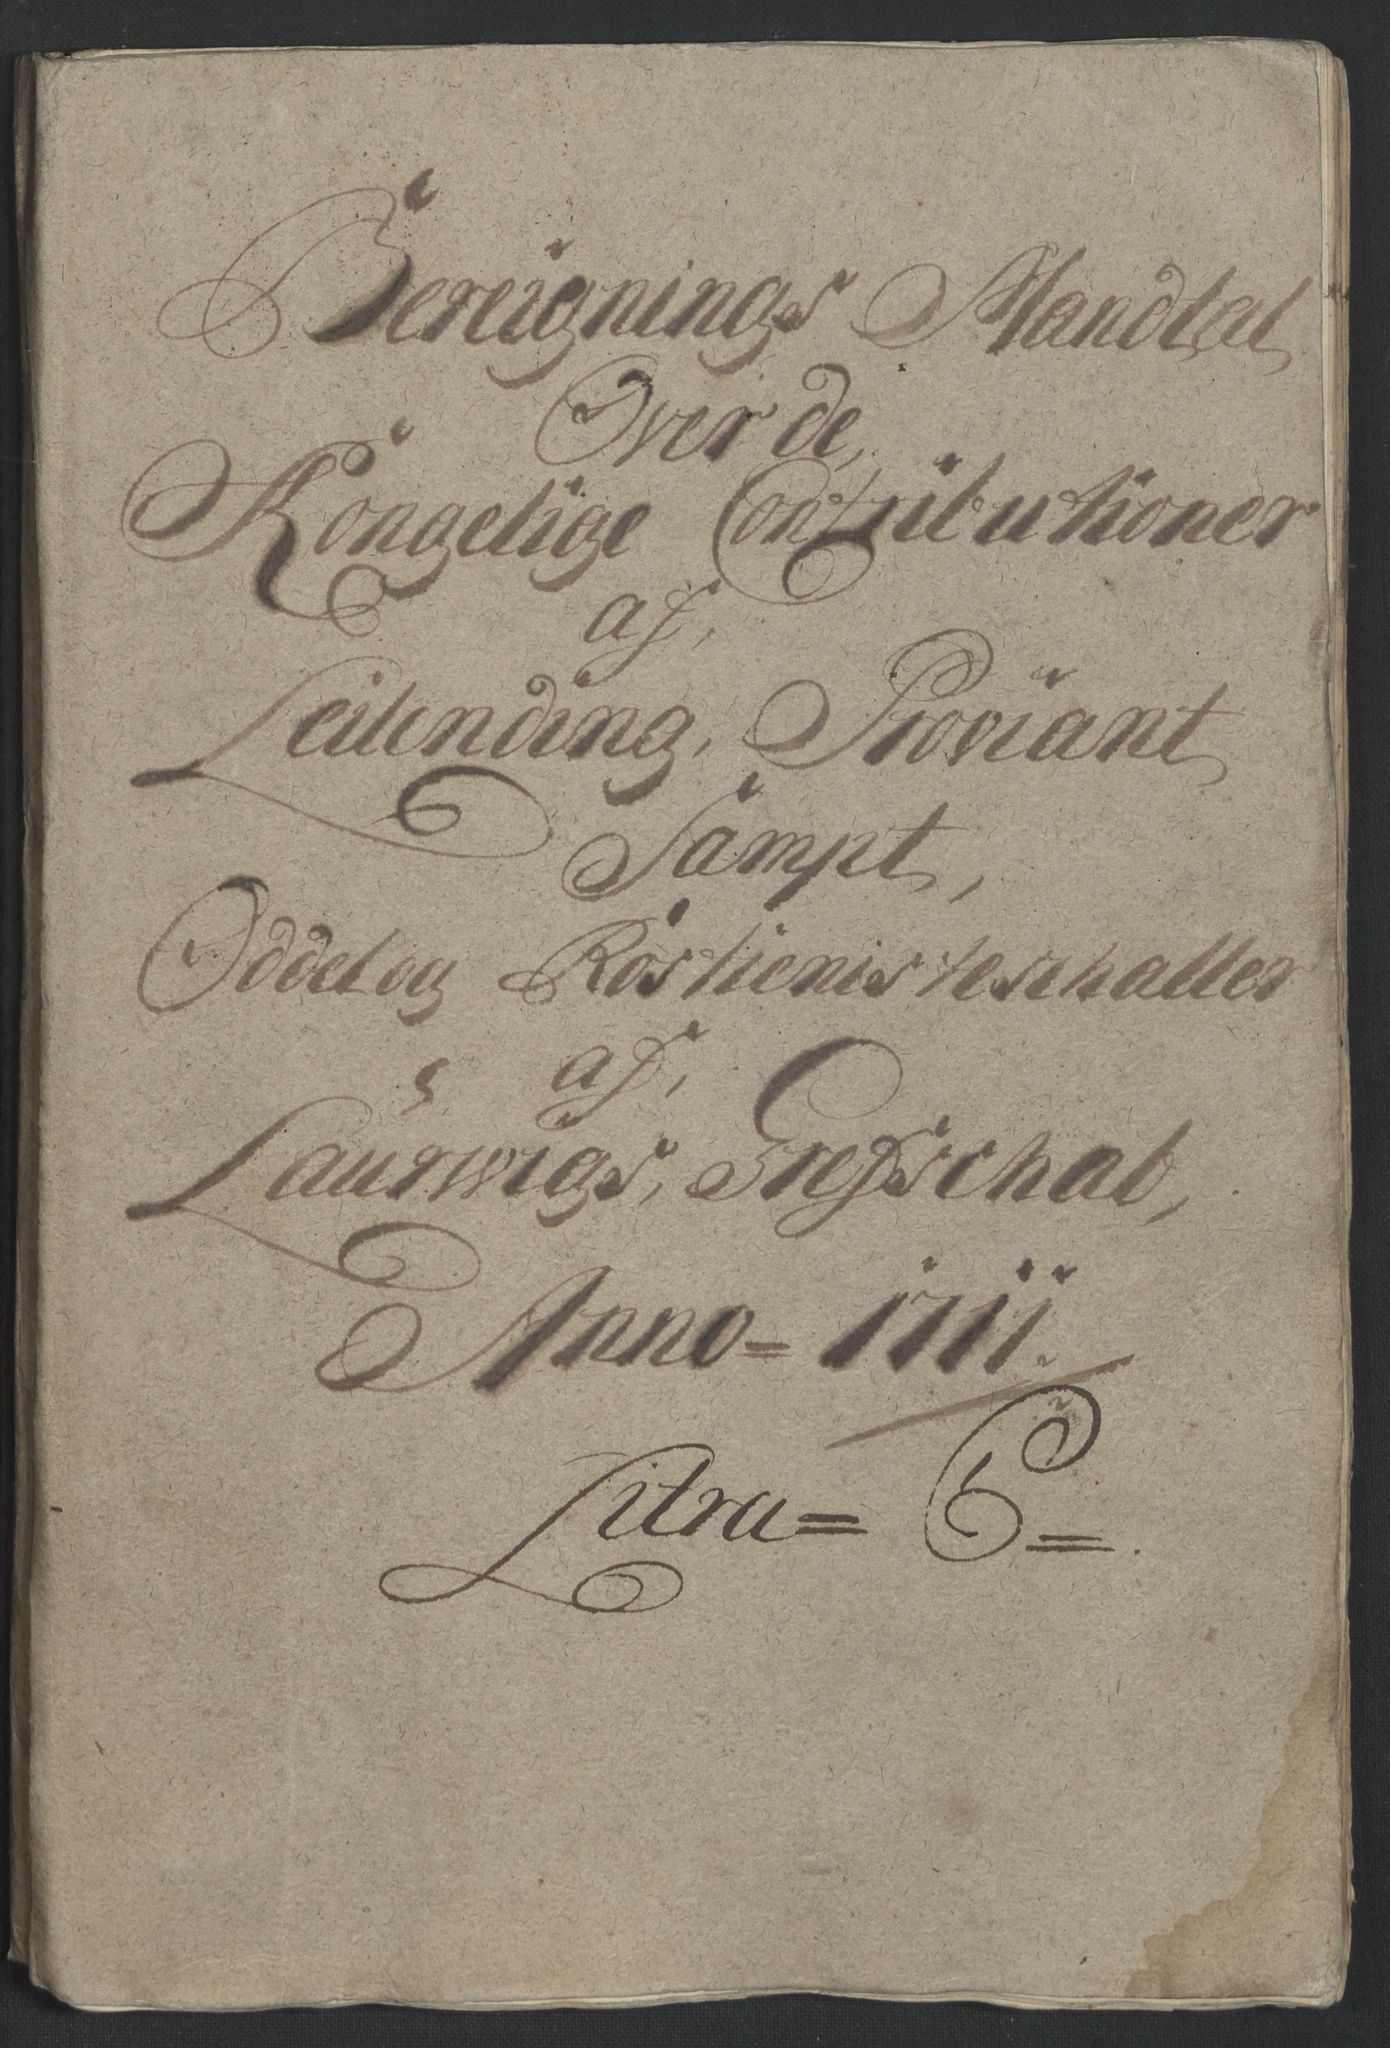 Bereignings Mandtal
Over de,
Kongelige Contributioner
af,
Leilending, Proviant
Sampt,
Oddel og Rostienisteschatter
af,
Laurwigs, Grefschab,
Anno = 1711.
Litra =